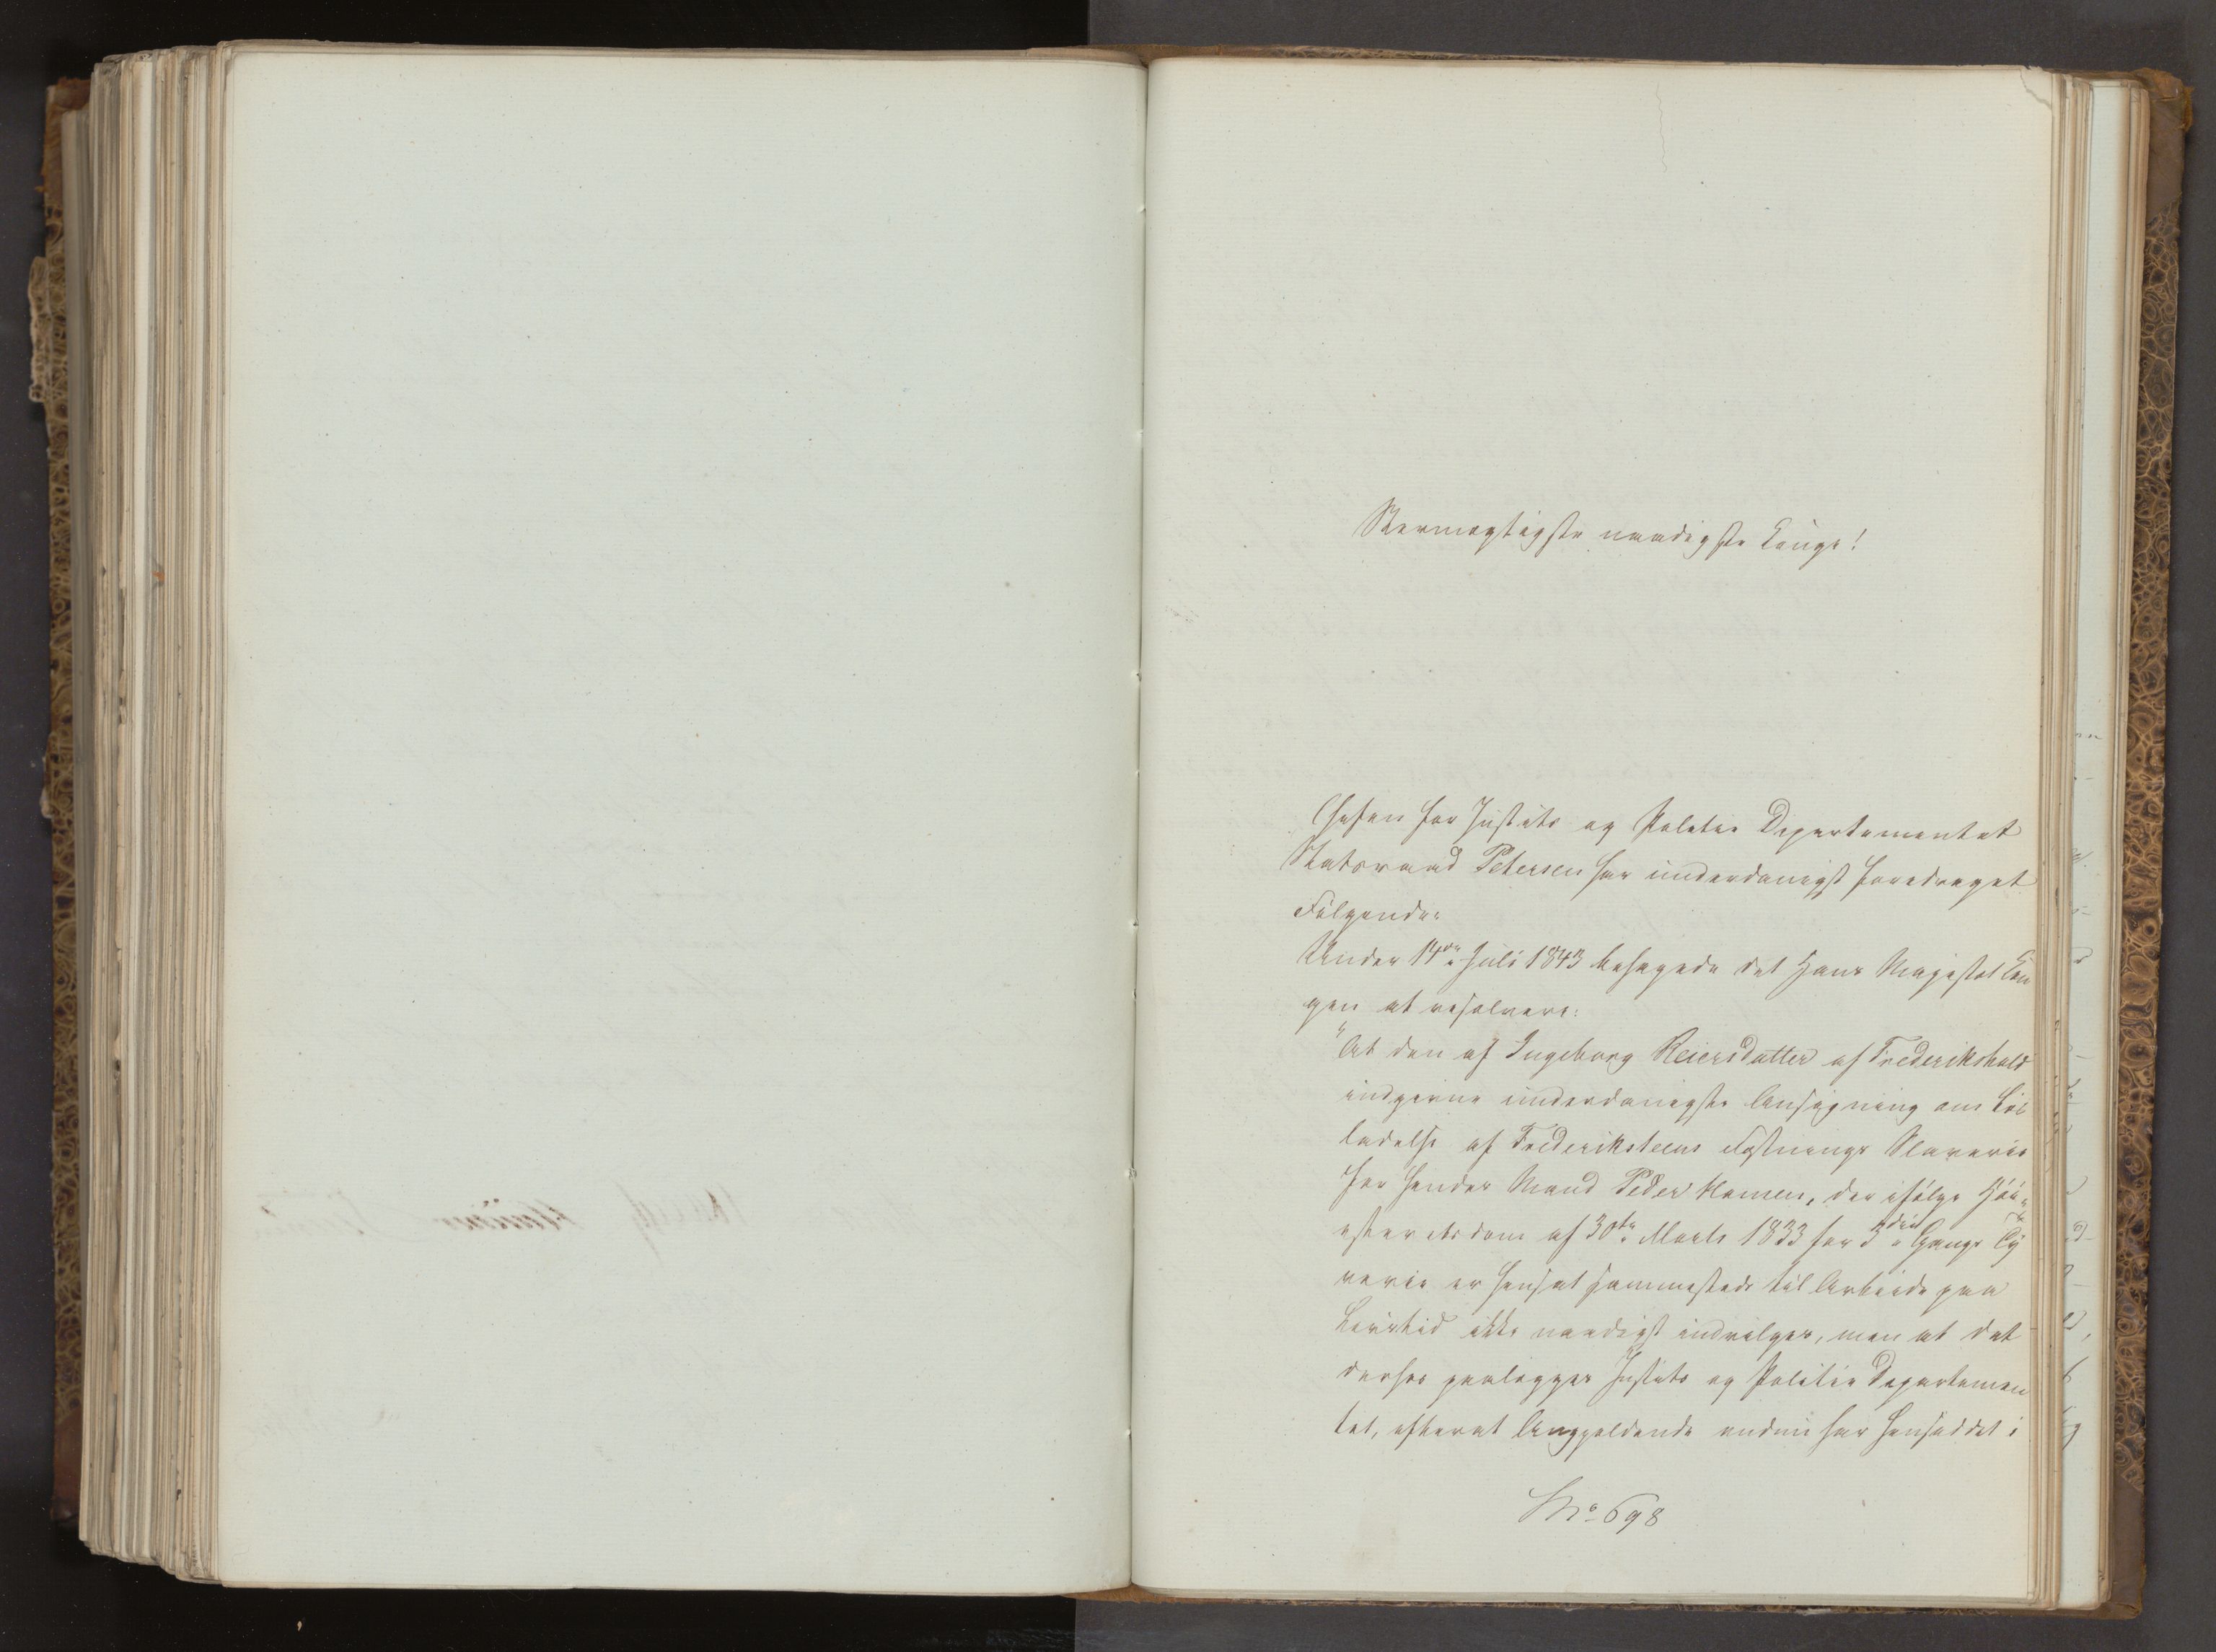 Stormægtigste naadigste Konge!
Chefen for Justits og Politie Departementet
Statsraad Petersen har underdanigst foredraget
Følgende:
Under 14de Juli 1843 behagede det Hans Majestæt Kon
gen at resolvere:
"At den af Ingeborg Reiersdatter af Frederikshald
indgivne underdanigste Ansøgning om Løs
ladelse af Frederiksteens Fæstnings Slaverie
for hendes Mand Peder Hansen, der ifølge Høi-
esteretsdom af 30te Marts 1833 for 3die Gangs Ty
verie er hensat sammesteds til Arbeide paa
Livstid ikke naadigst indvilges, men at det
derhos paalægges Justits og Politie Departemen
tet, efterat Angjeldende endnu har hensiddet i
No 698